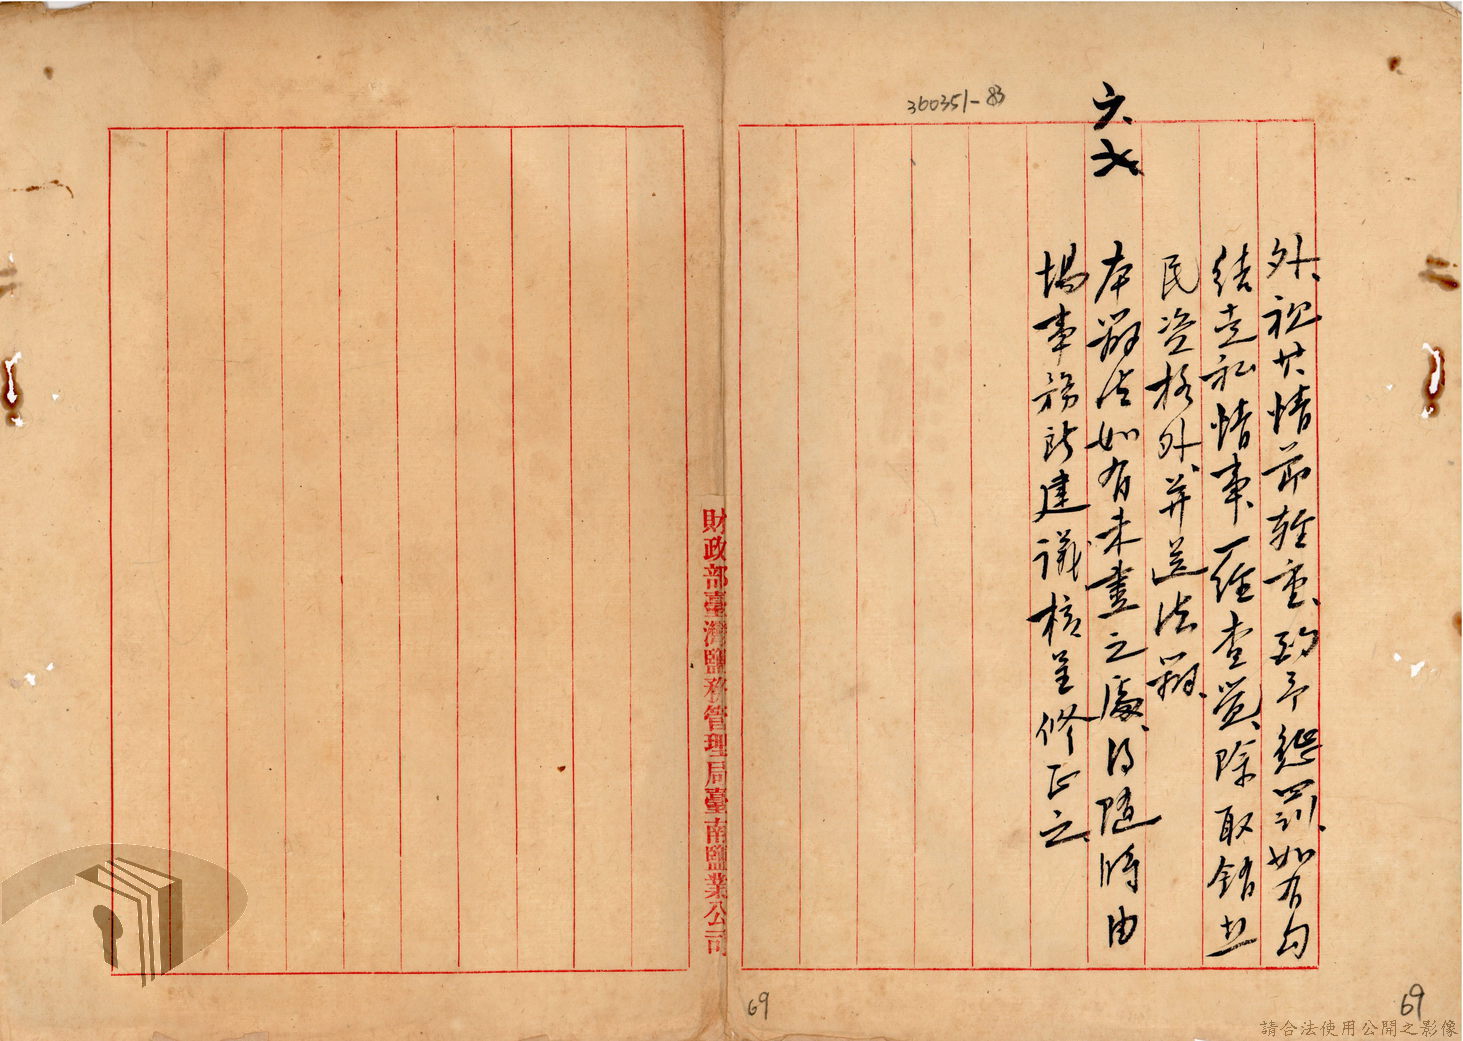 360351-83
外、視其情節輕重、酌予懲罰、如有勾
結走私情事、一經查覺、除取銷
民資格外、並送法辦、
六、七 本辦法如有未盡之處、得隨時由
場事務所建議核呈修正之、
財政部臺灣鹽務管理局臺南鹽業公司
69
69
請合法使用公開之影像